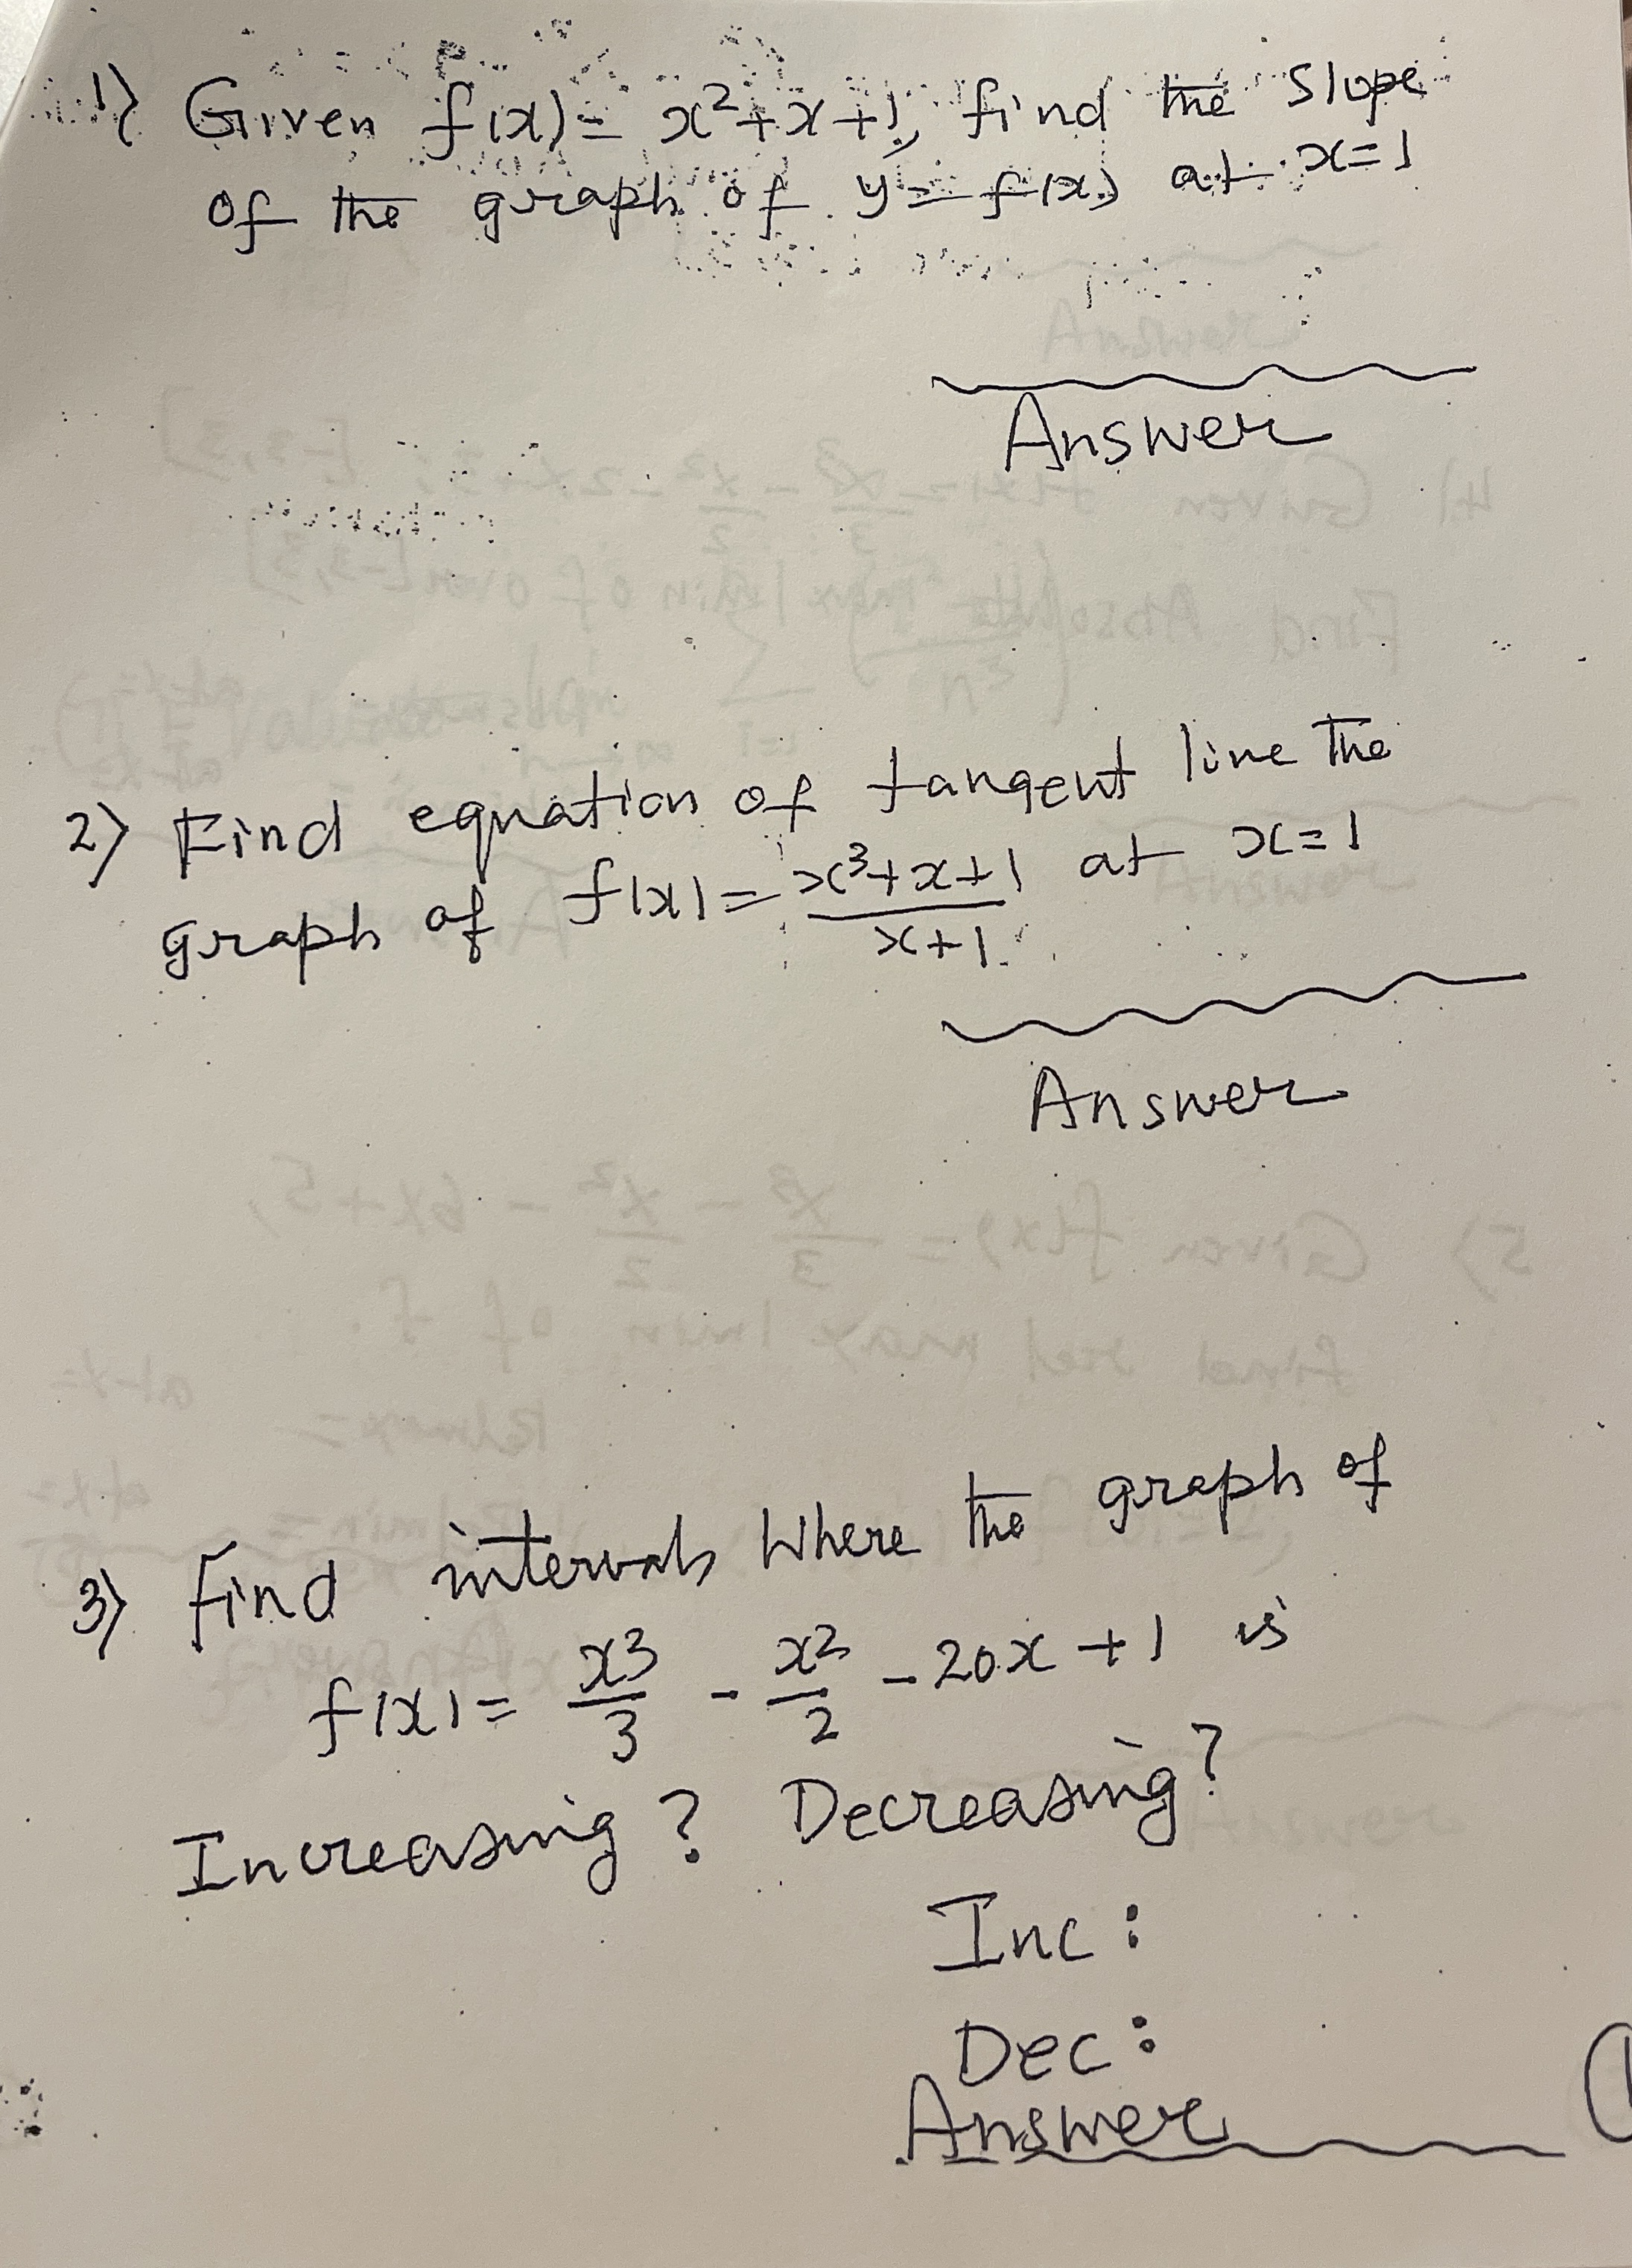 1) Given f(x) = x²+x+1, find the slope
of the graph of y = f(x) at x=1
Answer
2) Find equation of tangent line the
graph of f(x) = x³+x+1 / x+1 at x=1
Answer
3) Find intervals where the graph of
f(x) = x³/3 - x²/2 - 20x + 1 is
Increasing? Decreasing?
Inc:
Dec:
Answer